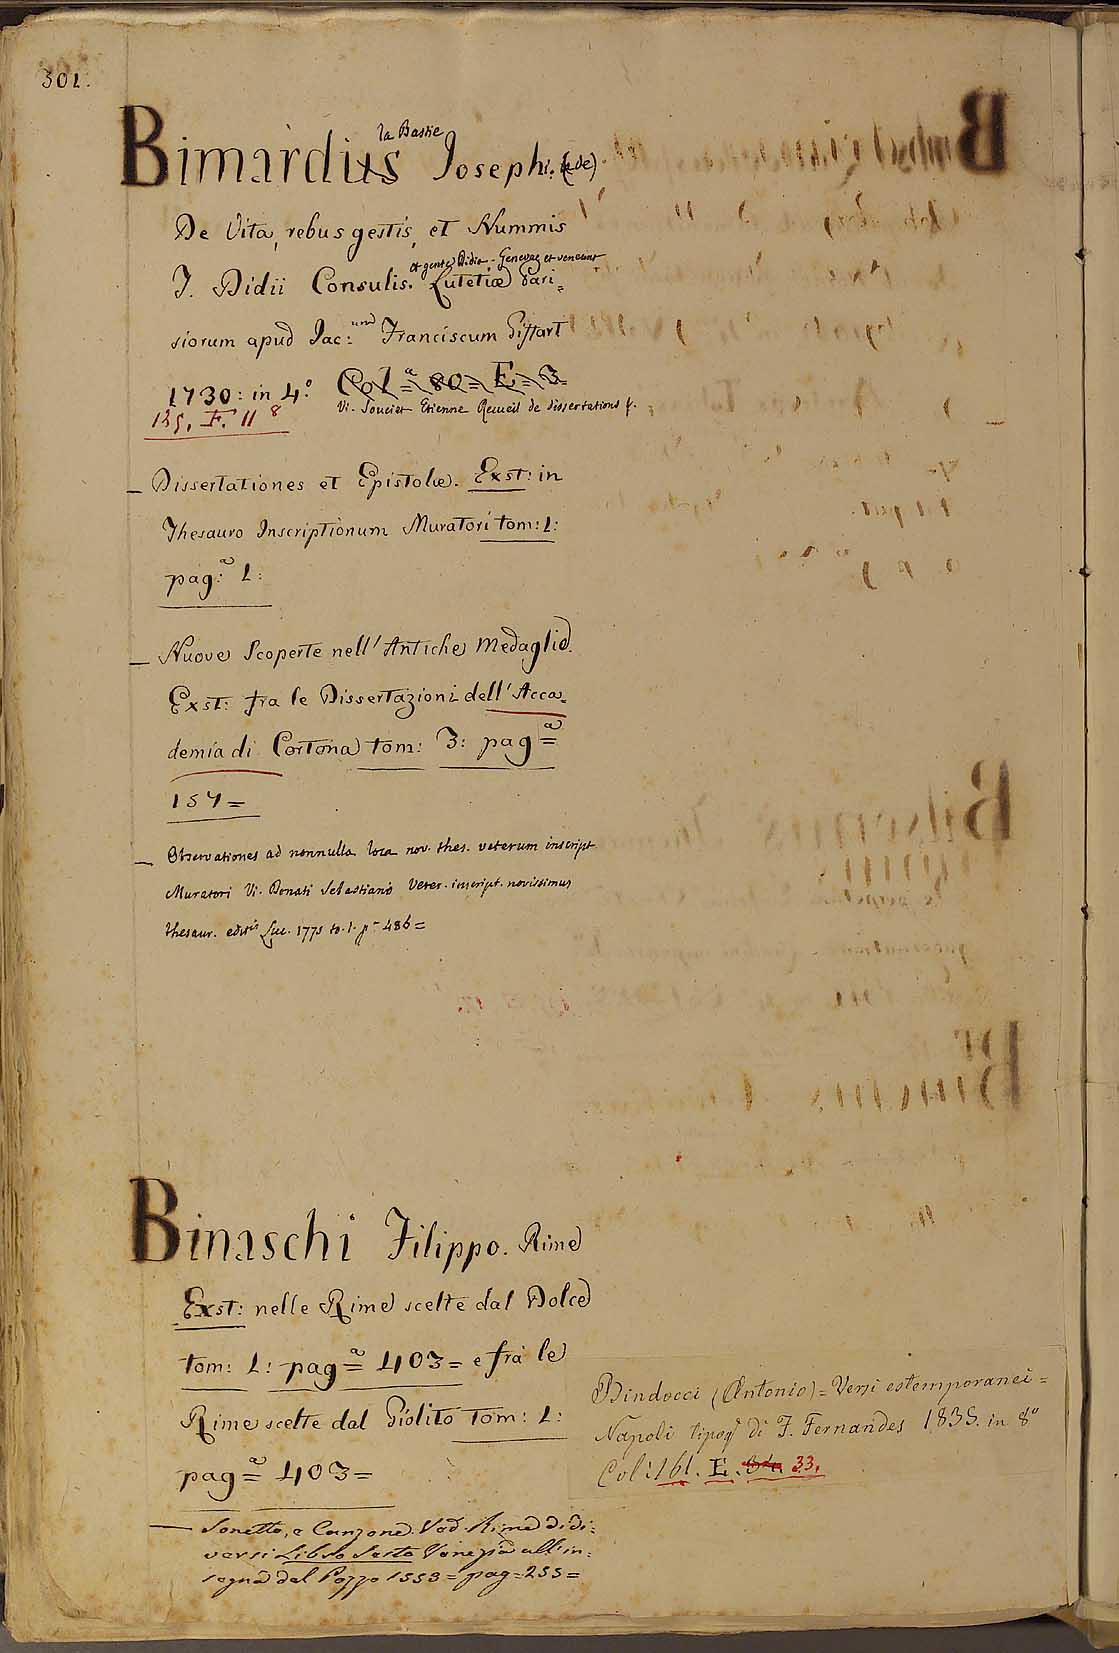 301.
la Bastie
Bimardius Joseph: (de)
De Vita, rebus gestis, et Nummis
et gente Didia - Genevae et veneunt
J. Didii Consulis. Lutetiæ Pari=
siorum apud Jac:um Franciscum Giffart
1730: in 4.º Col.a 80= E= 3=
Vi. Souciet Etienne Recueil de dissertations f.
135. F. 11 8
— Dissertationes et Epistolæ. Exst: in
Thesauro Inscriptionum Muratori tom: 1:
pag:a 1:
— Nuove Scoperte nell' Antiche Medaglie.
Exst: fra le Dissertazioni dell' Acca=
demia di Cortona tom: 3: pag=a
157=
— Observationes ad nonnulla loca nov. thes. veterum inscript
Muratori Vi. Donati Sebastiano Veter. inscript. novissimus
thesaur. editus Luc. 1775 to. 1. p= 486=
Binaschi Filippo. Rime
Exst: nelle Rime scelte dal Dolce
tom: 1: pag=a 403= e fra le
Rime scelte dal Giolito tom: 1:
pag=a 403=
— Sonetto, e Canzone. Vad. Rime di di=
versi Libro Sesto Venezia all' in=
segna del Pozzo 1553= pag=255=
Bindocci (Antonio)= Versi estemporanei=
Napoli tipog. di F. Fernandes 1835. in 8º
Col: 161. E. 33.